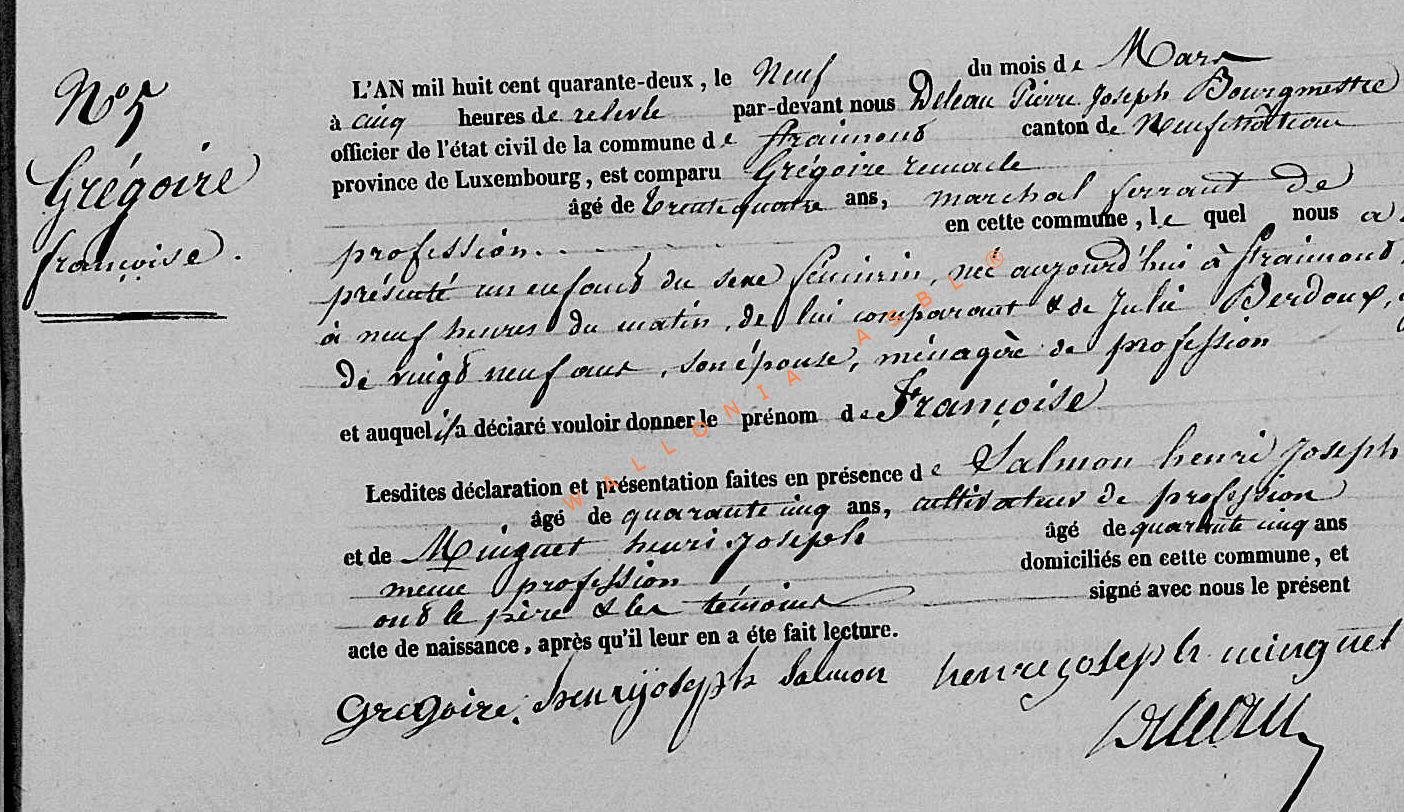 N° 5
Grégoire
françoise.
L'AN mil huit cent quarante-deux, le Neuf du mois de Mars
à cinq heures de relevée par-devant nous Deleau Pierre Joseph Bourgmestre
officier de l'état civil de la commune de straimont canton de Neufchâteau
province de Luxembourg, est comparu Grégoire remacle
âgé de trente quatre ans, marchal ferrant de
profession en cette commune, le quel nous a
présenté un enfant du sexe féminin, né aujourd'hui à straimont
à neuf heures du matin, de lui comparant & de Julie Berdoux,
de vingt neuf ans, son épouse, ménagère de profession
et auquel il a déclaré vouloir donner le prénom de Françoise
Lesdites déclaration et présentation faites en présence de Salmon henri Joseph
, âgé de quarante cinq ans, cultivateur de profession
et de Minguet henri Joseph âgé de quarante cinq ans
meme profession domiciliés en cette commune, et
ont le père & les témoins signé avec nous le présent
acte de naissance, après qu'il leur en a éte fait lecture.
Gregoire. henrijoseph Salmon henrijoseph minguet
Deleau
WALLONIA ASBL ®